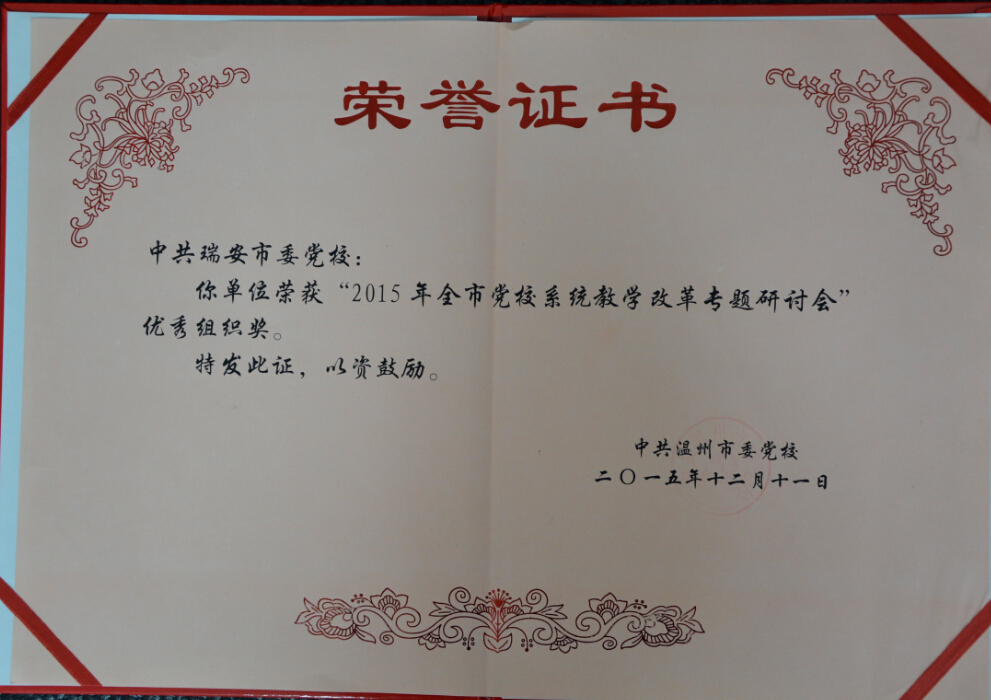 荣誉证书
中共瑞安市委党校：
你单位荣获“2015年全市党校系统教学改革专题研讨会”
优秀组织奖。
特发此证，以资鼓励。
中共温州市委党校
二〇一五年十二月十一日